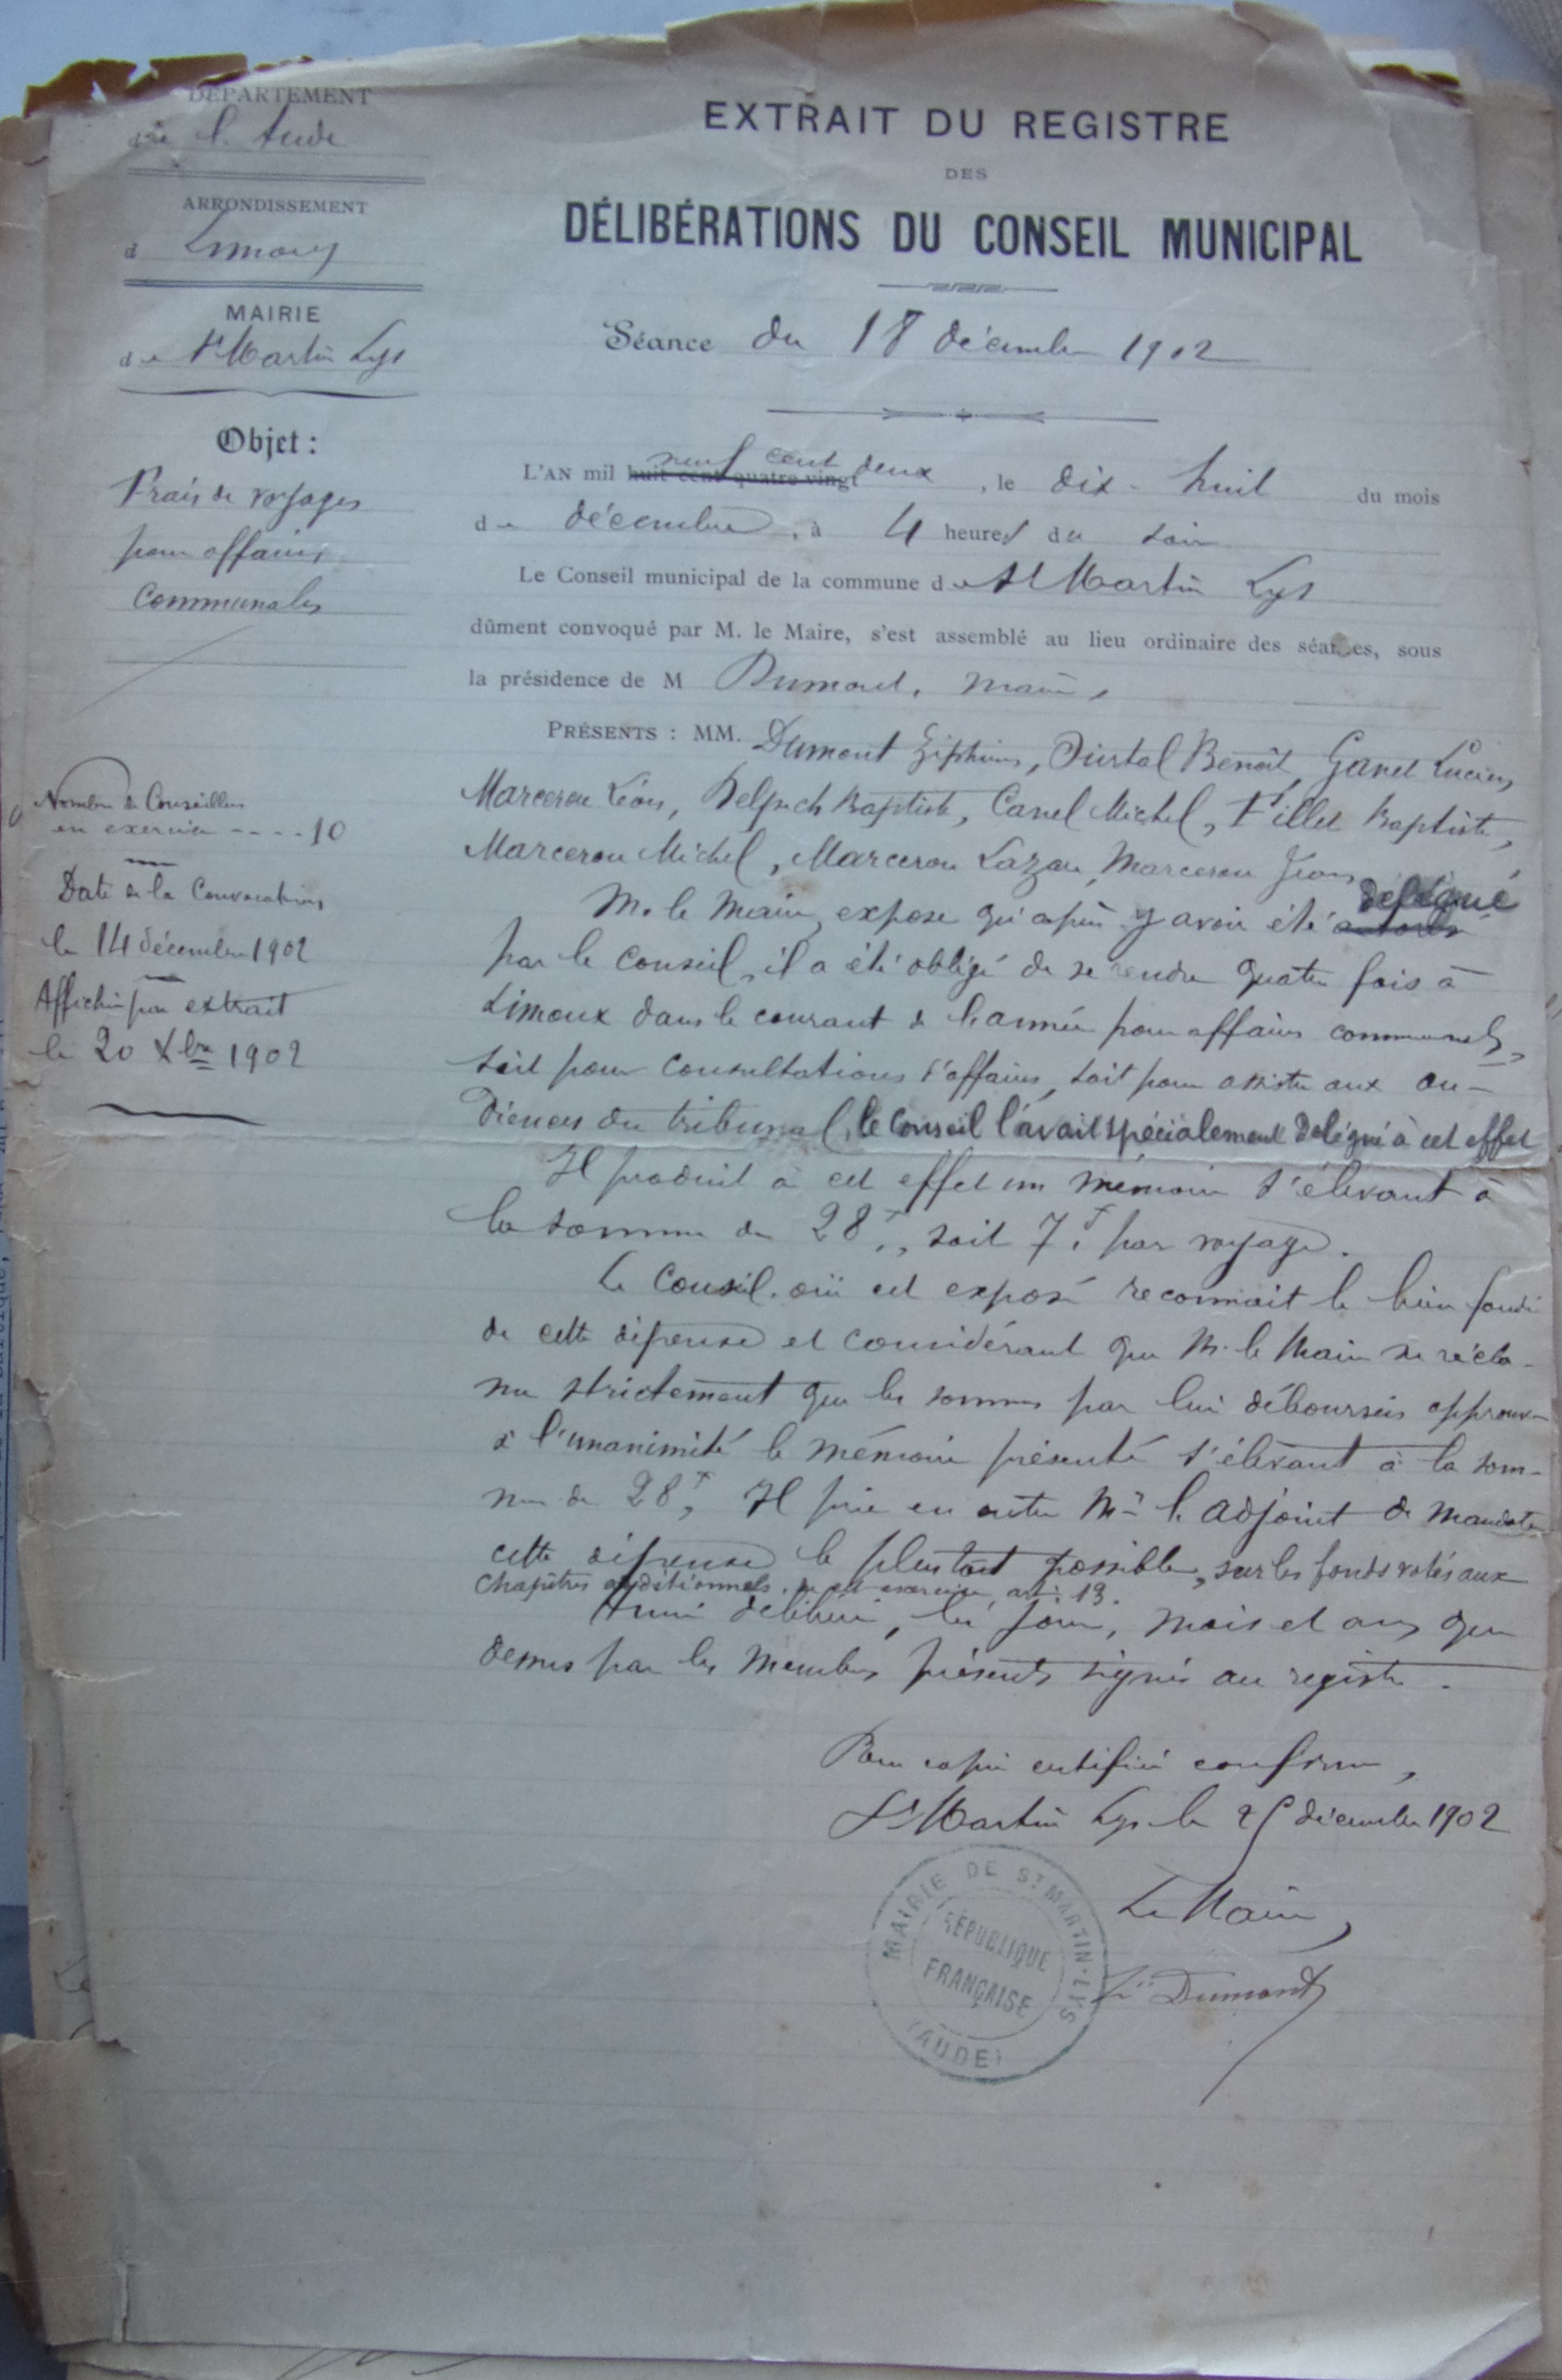 DÉPARTEMENT
de l'Aude
ARRONDISSEMENT
d Limoux
MAIRIE
de St Martin Lys
Objet :
Frais de voyages
pour affaires
communales
Nombre de Conseillers
en exercice - - - - 10
Date de la Convocation
le 14 décembre 1902
Affichée par extrait
le 20 Xbre 1902
EXTRAIT DU REGISTRE
DES
DÉLIBÉRATIONS DU CONSEIL MUNICIPAL
Séance du 18 décembre 1902
neuf cent deux
L'AN mil huit cent quatre-vingt , le dix-huit du mois
de décembre, à 4 heures du soir
Le Conseil municipal de la commune de St Martin Lys
dûment convoqué par M. le Maire, s'est assemblé au lieu ordinaire des séances, sous
la présidence de M Dumont, maire,
PRÉSENTS : MM. Dumont Zéphirin, Benoît, Lucien,
Marcerou Léon, Delpech Baptiste, Canel Michel, Fillet Baptiste,
Marcerou Michel, Marcerou Lazare, Marcerou Jean
délégué
M. le Maire, expose qu'après y avoir été
par le conseil, il a été obligé de se rendre quatre fois à
Limoux dans le courant de l'année pour affaires communales,
soit pour consultations d'affaires, soit pour assister aux au-
diences du tribunal, le Conseil l'avait spécialement délégué à cet effet
Il produit à cet effet un mémoire s'élevant à
la somme de 28f, soit 7f par voyage.
Le Conseil, ouï cet exposé reconnait le bien fondé
de cette dépense et considérant que M. le Maire ne récla-
me strictement que les sommes par lui déboursées approuve
à l'unanimité le mémoire présenté s'élevant à la som-
me de 28f, Il prie en outre Mr l'adjoint de mandater
cette dépense le plus tôt possible, sur les fonds votés aux
chapitres additionnels, de cet exercice, art. 13.
Ainsi délibéré, les jour, mois et an que
dessus par les membres présents signés au registre.
Pour copie certifiée conforme,
St Martin Lys le 25 décembre 1902
Le Maire,
Zin Dumont
MAIRIE DE ST MARTIN-LYS
RÉPUBLIQUE
FRANÇAISE
(AUDE)